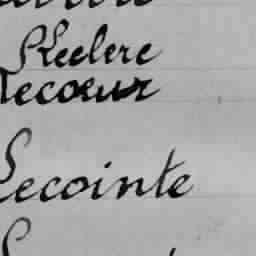 Leclere
Lecœur
Lecointe